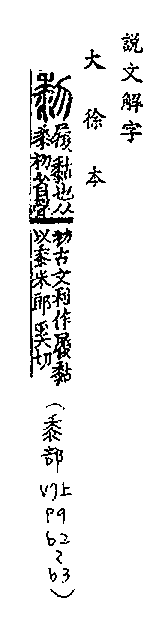 說文解字
大徐本
履黏也从
黍𥝢省聲
𥝢古文利作履黏
以黍米郎奚切
(黍部 V7上 P9 b2~b3)